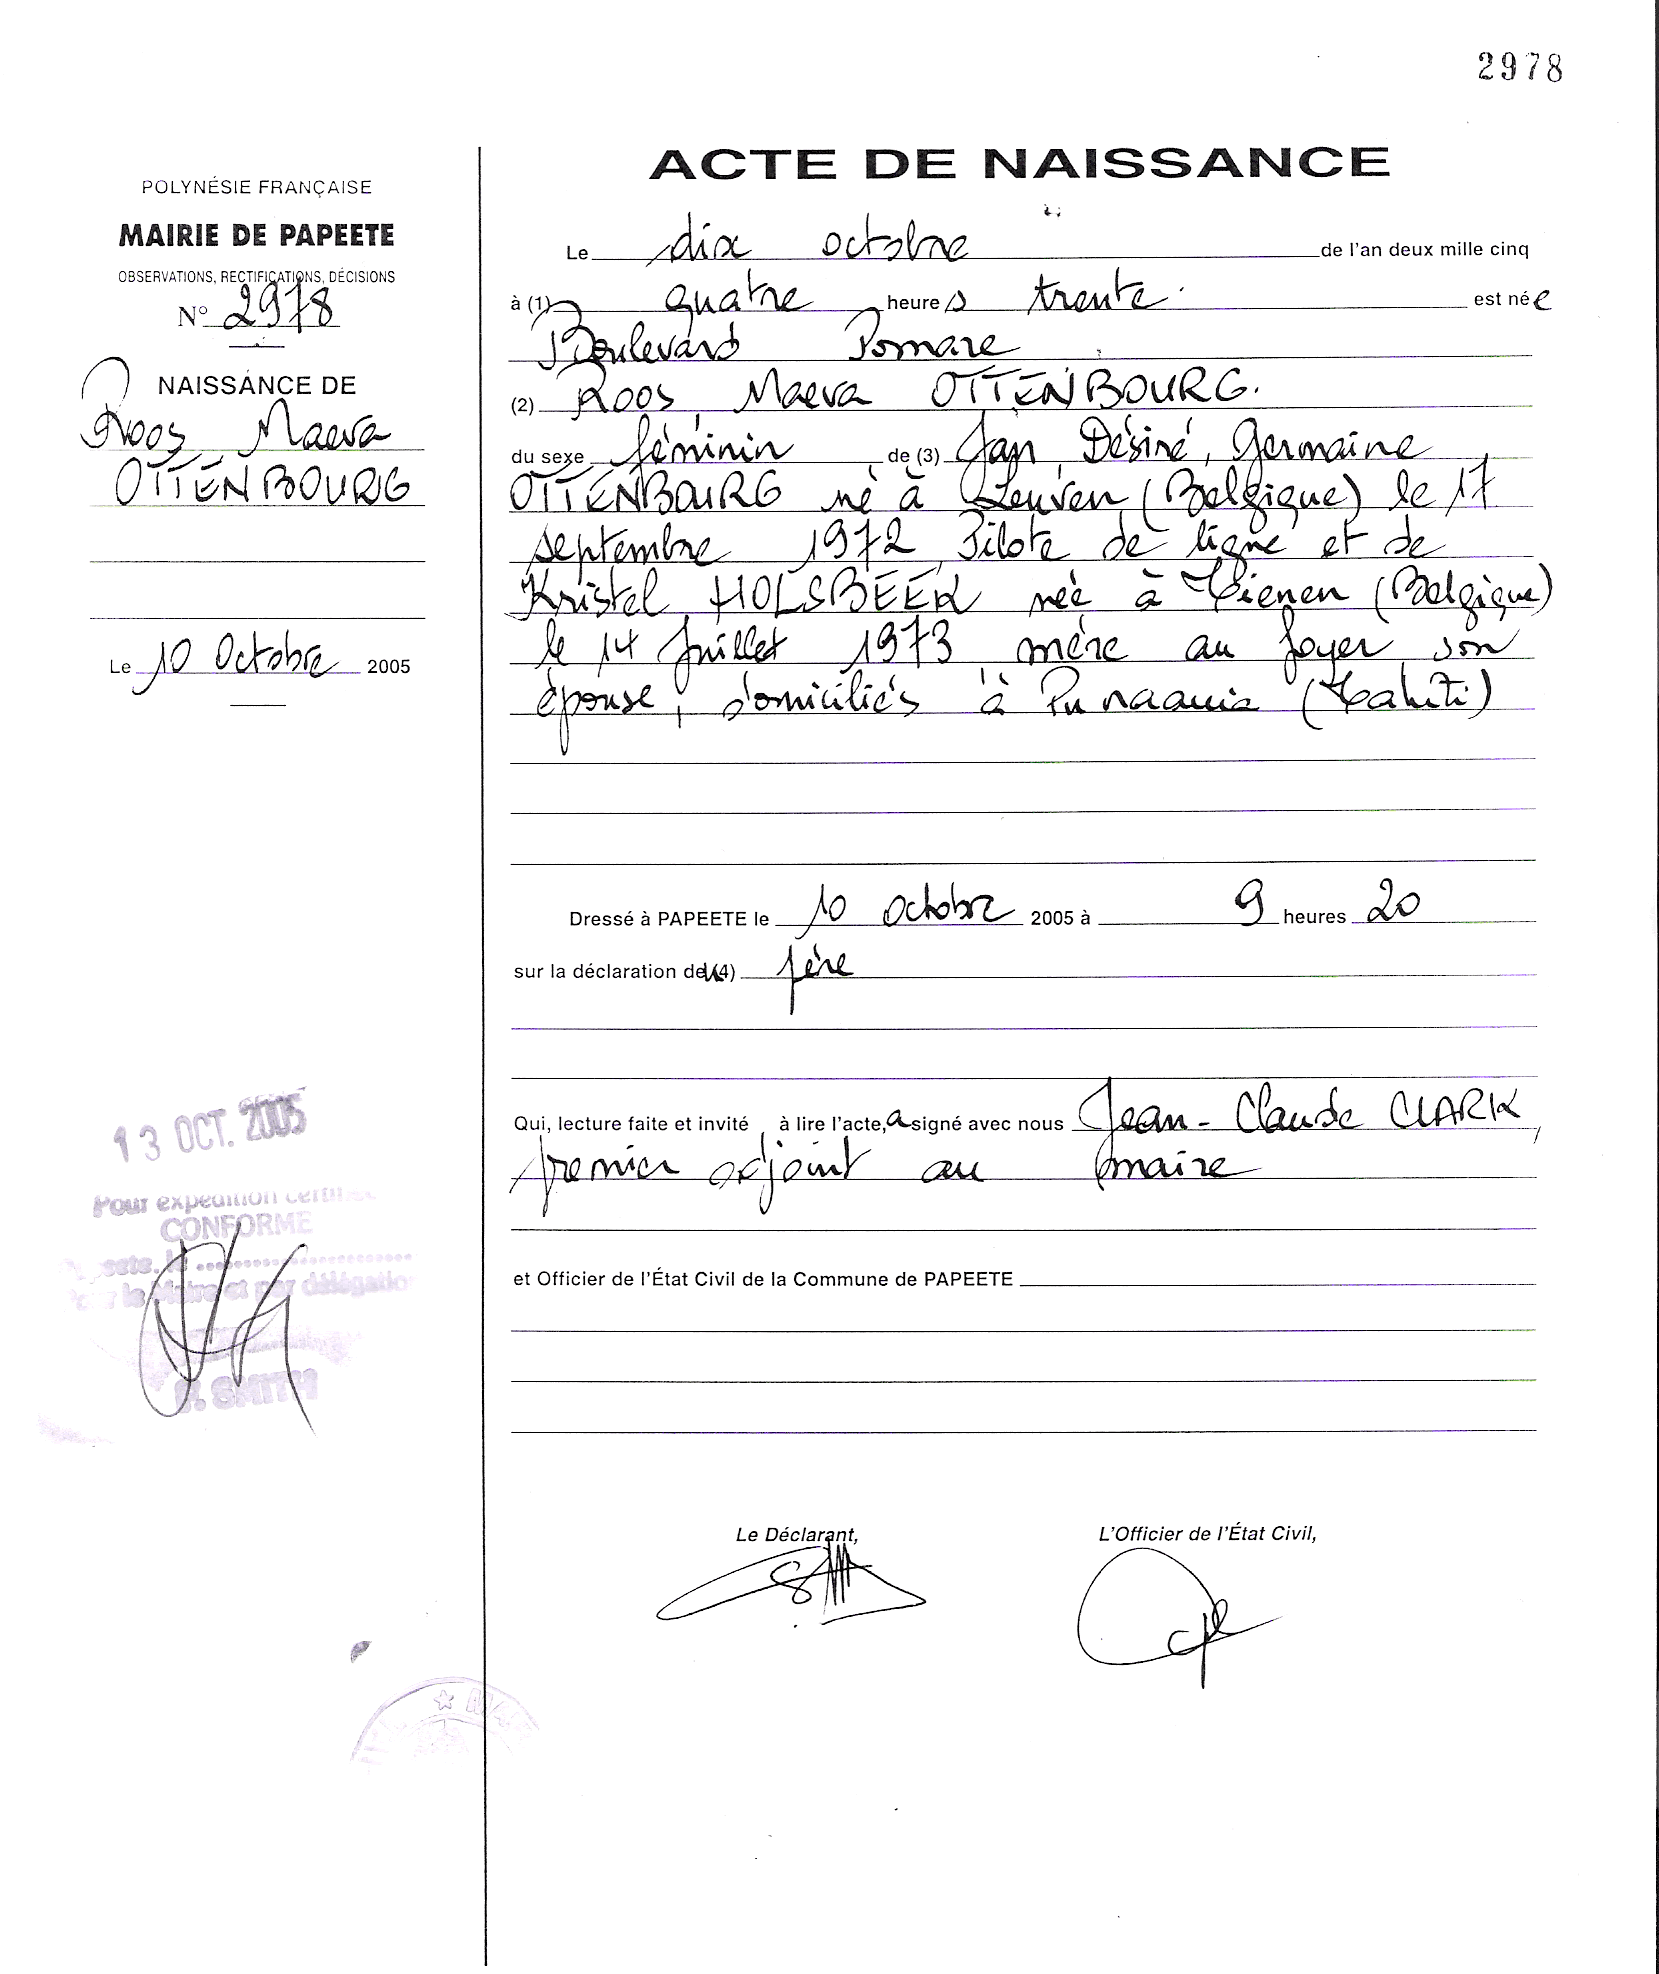 2978
POLYNÉSIE FRANÇAISE
MAIRIE DE PAPEETE
OBSERVATIONS, RECTIFICATIONS, DÉCISIONS
N° 2978
NAISSANCE DE
Roos, Maeva
OTTENBOURG
Le 10 Octobre 2005
13 OCT. 2005
Pour expédition certifiée
CONFORME
le
Pour le Maire et par délégation
SMITH
ACTE DE NAISSANCE
Le dix octobre de l'an deux mille cinq
à (1) quatre heures trente est née
Boulevard Pomare
(2) Roos, Maeva OTTENBOURG.
du sexe féminin de (3) Jan, Désiré, Germaine
OTTENBOURG né à Leuven (Belgique) le 17
septembre 1972 Pilote de ligne et de
Kristel HOLSBEEK née à Tienen (Belgique)
le 14 Juillet 1973 mère au foyer son
épouse, domiciliés à Punaauia (Tahiti)
Dressé à PAPEETE le 10 Octobre 2005 à 9 heures 20
sur la déclaration du (4) père
Qui, lecture faite et invité, à lire l'acte, a signé avec nous Jean-Claude CLARK,
premier adjoint au maire
et Officier de l'État Civil de la Commune de PAPEETE
Le Déclarant,
L'Officier de l'État Civil,